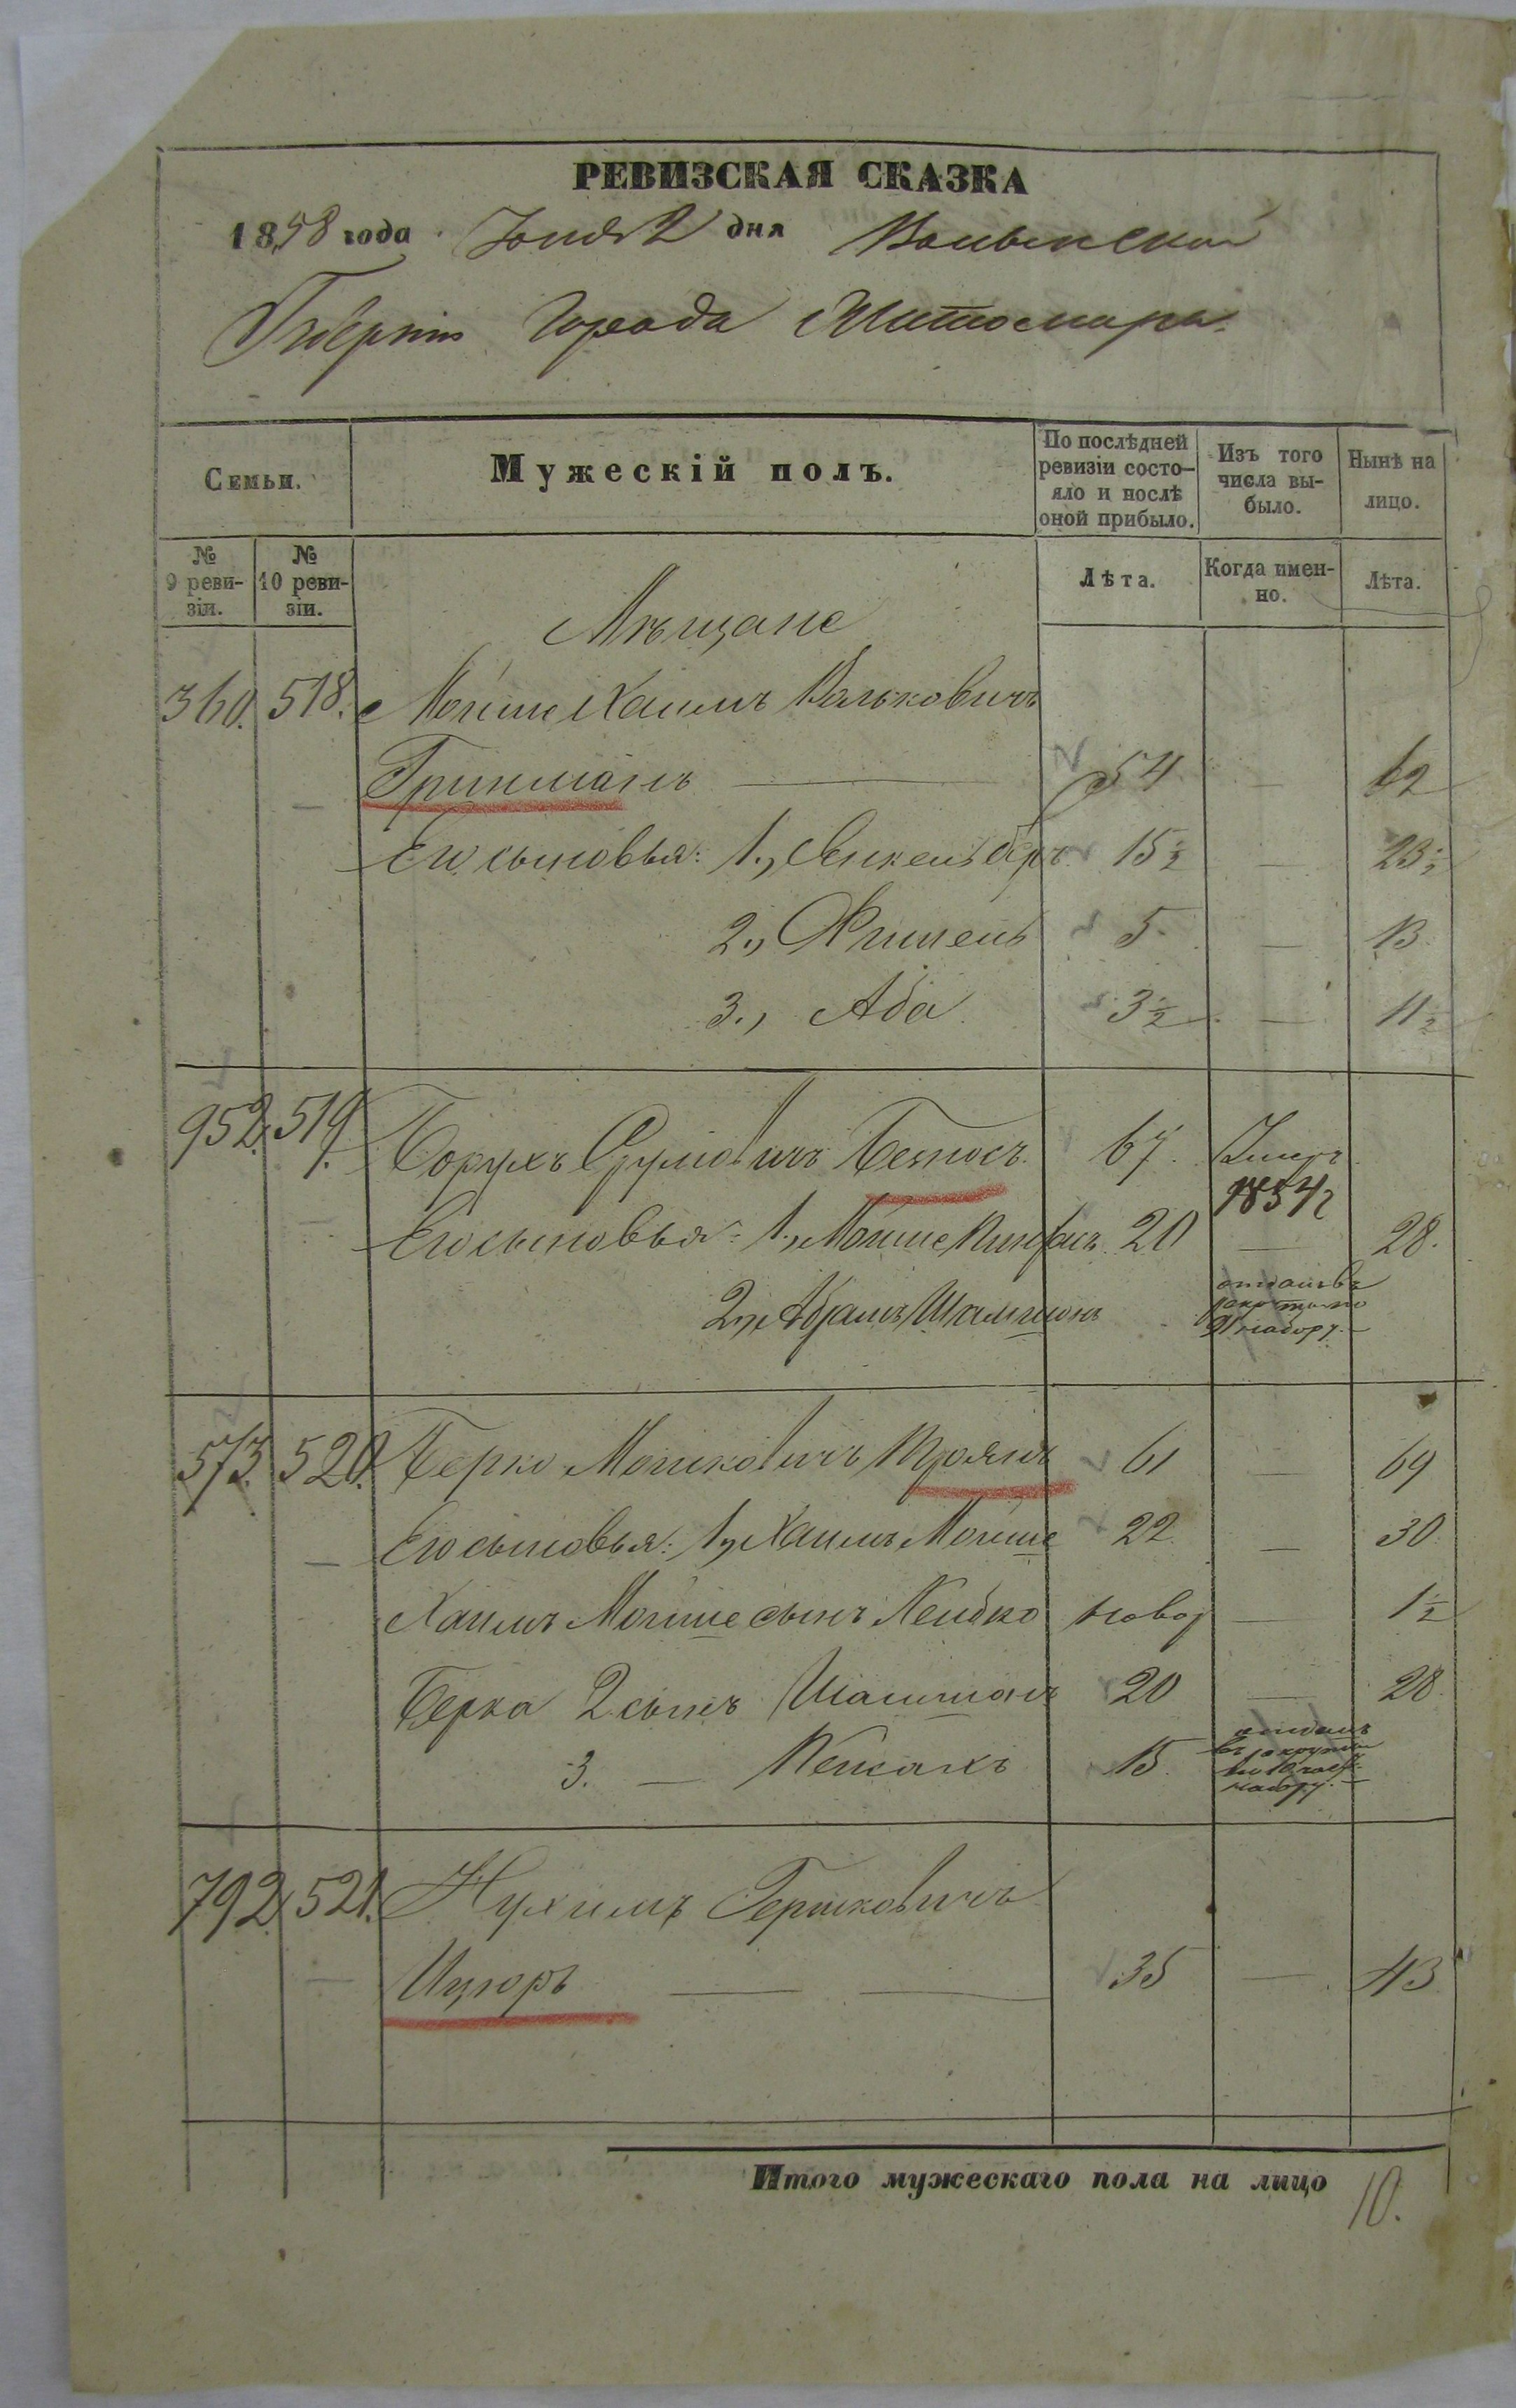 РЕВИЗСКАЯ СКАЗКА
1858 года Июня 2 дня Волынской
Губерніи Города Житомира
Семьи.
Мужескій полъ.
По послѣдней ревизіи состо-яло и послѣ оной прибыло.
Изъ того числа вы-было.
Нынѣ на лицо.
№ 9 реви-зіи.
№ 10 реви-зіи.
Лѣта.
Когда имен-но.
Лѣта.
Мѣщане
360. 518. Мойше Хаимъ Вольковичъ
Гринманъ — 54 — 62
Его сыновья: 1., 15½ — 23½
2., 5 — 13
3., Аба 3½ — 11½
952. 519. Борухъ Сруліовичъ 67. Умеръ 1854 г
Его сыновья: 1., Мойше 20 — 28.
2., Абрамъ Шлиома набору.
573. 520. Берко Мошковичъ 61 — 69
Его сыновья: 1., Хаимъ Мойше 22 — 30.
Хаимъ Мойше сынъ Лейбко новор — 1½
Берка 2 сынъ 20 — 28.
3. — 15. набору.
792. 521. Нухимъ Гершковичъ
— — 35 — 43
Итого мужескаго пола на лицо 10.